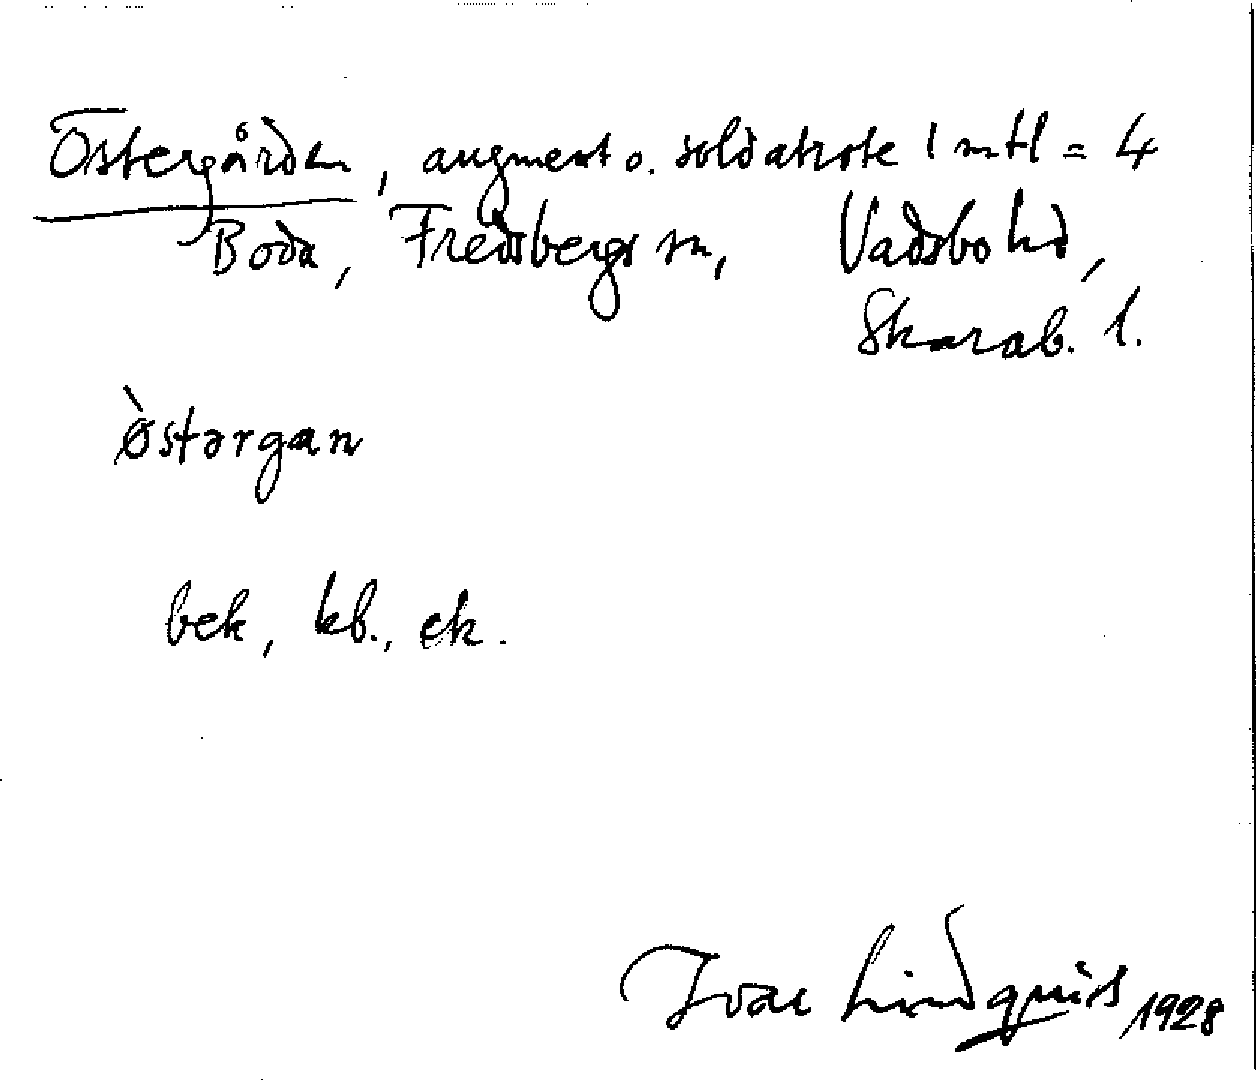 Östergården, augment o. soldatrote 1 mtl = 4
Boda, Fredsbergs sn, Vadsbo hd,
Skarab. l.
ø̀stərgan
bek, kb., ek.
Ivar Lindquist 1928